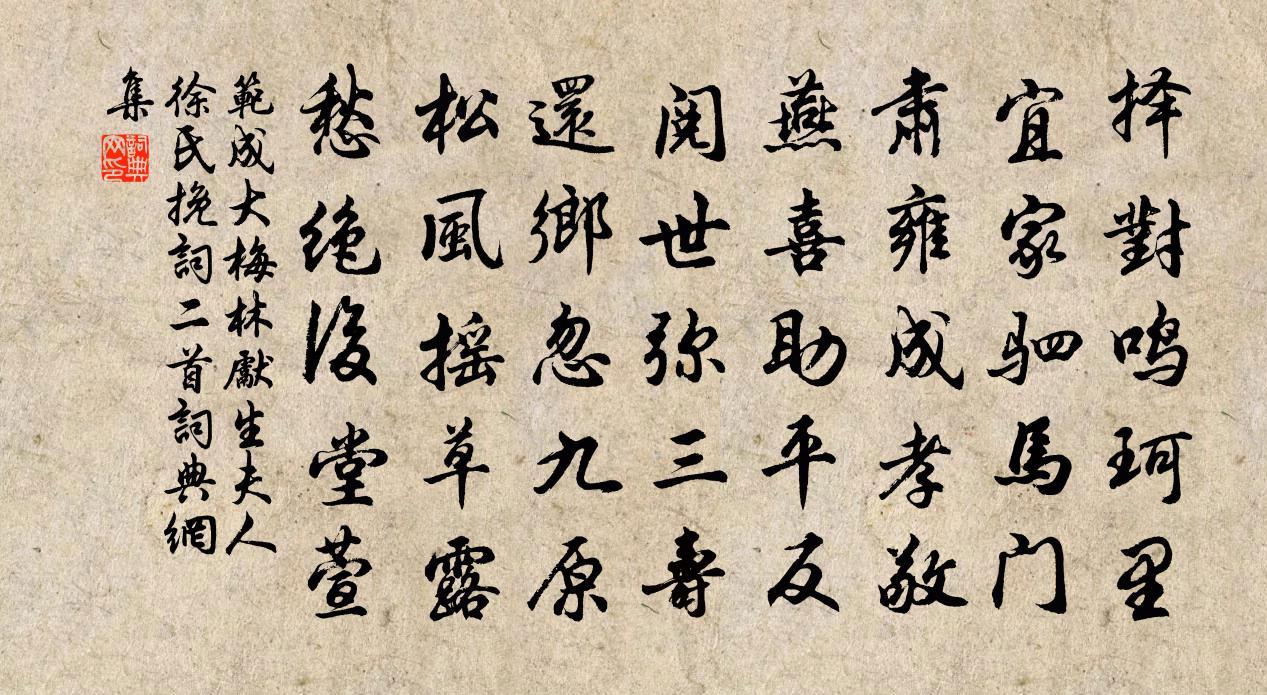 择對鸣珂里
宜家驷馬门
肃雍成孝敬
燕喜助平反
阅世弥三壽
還鄉忽九原
松風摇草露
愁绝後堂萱
範成大梅林獻生夫人
徐氏挽詞二首詞典網
集
詞典網印